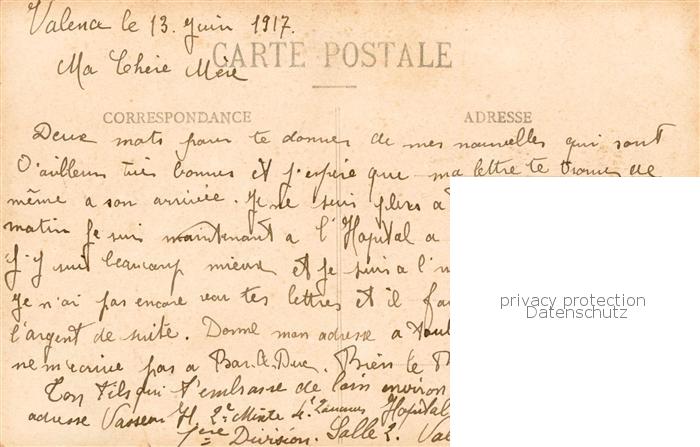 Valence le 13. Juin 1917.
CARTE POSTALE
Ma Chère Mère
CORRESPONDANCE
ADRESSE
Deux mots pour te donner de mes nouvelles qui sont
D'ailleurs très bonnes et j'espère que ma lettre te trouve de
même a son arrivée. Je ne suis plus a
matin Je suis maintenant a l'Hopital a
J'y suis beaucoup mieux et je suis a l'
privacy protection
Datenschutz
Je n'ai pas encore reçu tes lettres et il
l'argent de suite. Donne mon adresse a
ne m'écrive pas a Bar-le-Duc. Bien le
Ton fils qui t'embrasse de loin
adresse H. 2e Mixte Hopital
1ère Division. Salle 2.